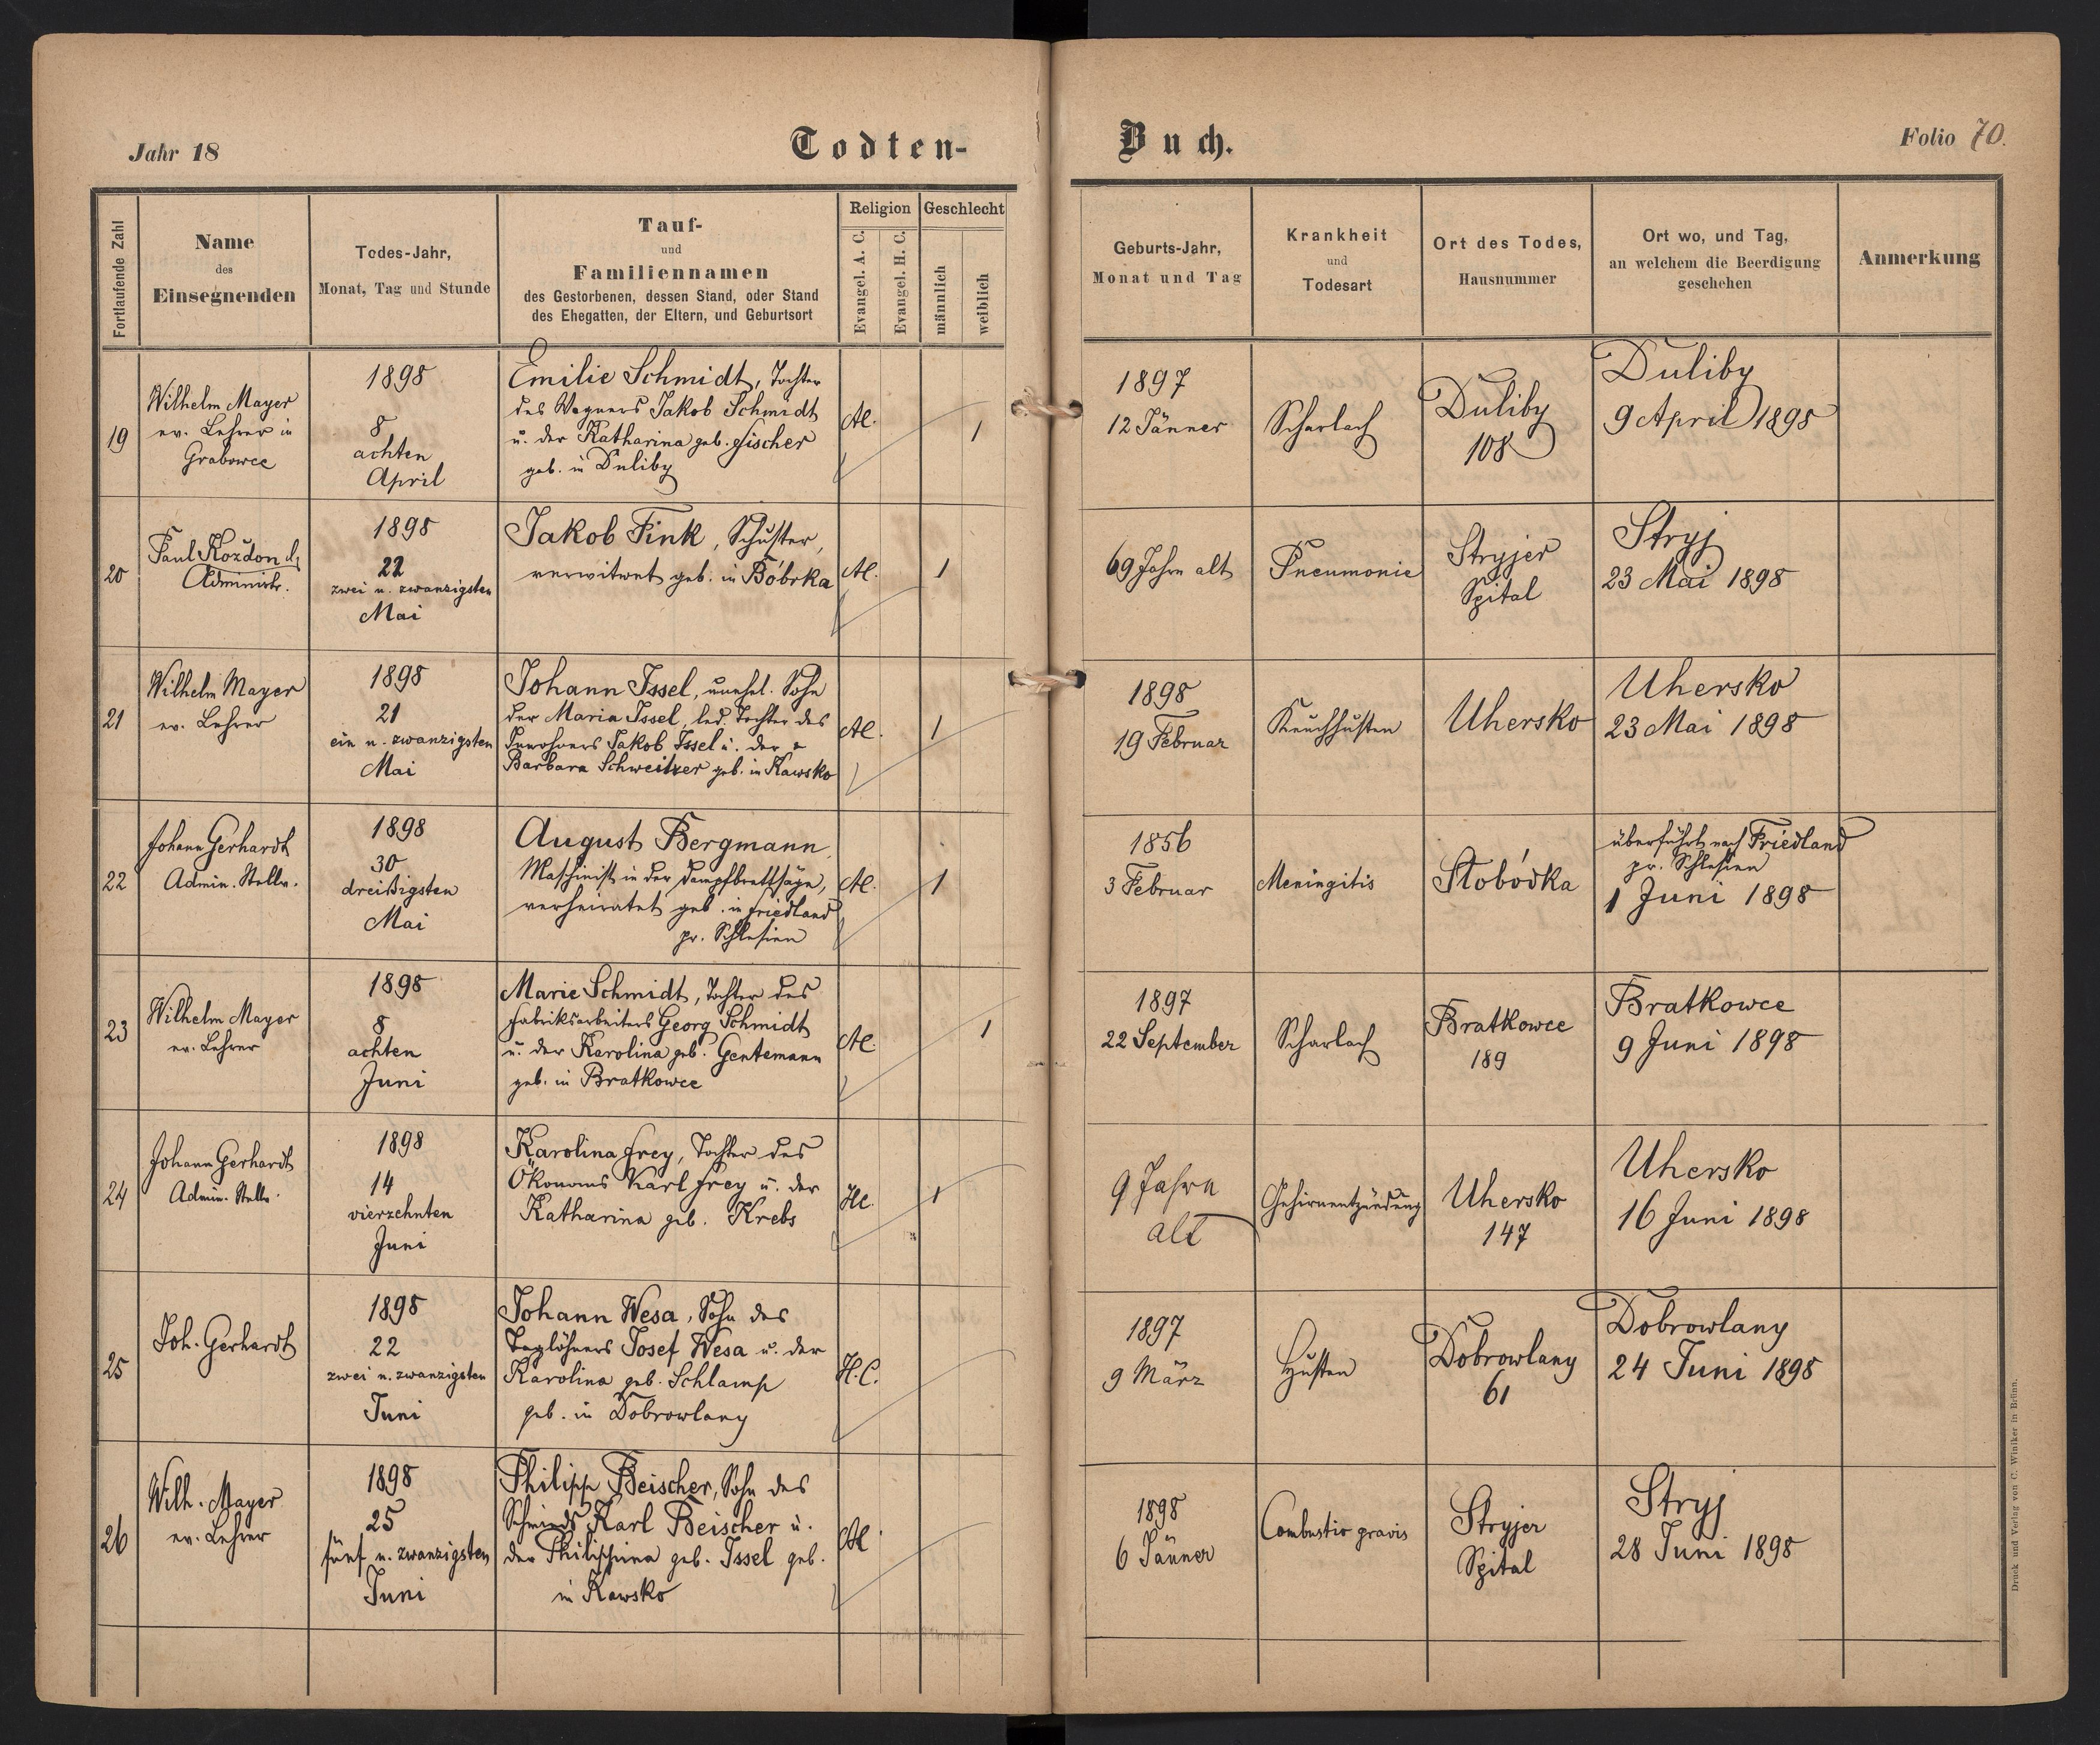 Jahr 18
Todten-
Buch.
Folio 70.
Fortlaufende Zahl
Name
des
Einsegnenden
Todes-Jahr,
Monat, Tag und Stunde
Tauf-
und
Familiennamen
des Gestorbenen, dessen Stand, oder Stand
des Ehegatten, der Eltern, und Geburtsort
Religion
Evangel. A. C.
Evangel. H. C.
Geschlecht
männlich
weiblich
Geburts-Jahr,
Monat und Tag
Krankheit
und
Todesart
Ort des Todes,
Hausnummer
Ort wo, und Tag,
an welchem die Beerdigung
geschehen
Anmerkung
19
Wilhelm Mayer
ev. Lehrer in
Grabowce
1898
8
achten
April
Emilie Schmidt, Tochter
des Wagners Jakob Schmidt
u. der Katharina geb. Fischer
geb. in Duliby
AC.
1
1897
12 Jänner
Scharlach
Duliby
108
Duliby
9 April 1898
20
Paul Kozdon
Administr.
1898
22
zwei u. zwanzigsten
Mai
Jakob Fink, Schuster,
verwitwet geb. in Bóbrka
AC.
1
69 Jahre alt
Pneumonie
Stryjer
Spital
Stryj
23 Mai 1898
21
Wilhelm Mayer
ev. Lehrer
1898
21
ein u. zwanzigsten
Mai
Johann Issel, unehel. Sohn
der Maria Issel, led. Tochter des
Inwohners Jakob Issel u. der
Barbara Schweitzer geb. in Kawsko
AC.
1
1898
19 Februar
Keuchhusten
Uhersko
Uhersko
23 Mai 1898
22
Johann Gerhardt
Admin. Stellv.
1898
30
dreißigsten
Mai
August Bergmann,
Maschinist in der Dampfbrettsäge,
verheiratet geb. in Friedland
pr. Schlesien
AC.
1
1856
3 Februar
Meningitis
Słobódka
überführt nach Friedland
pr. Schlesien
1 Juni 1898
23
Wilhelm Mayer
ev. Lehrer
1898
8
achten
Juni
Marie Schmidt, Tochter des
Fabriksarbeiters Georg Schmidt
u. der Karolina geb. Gentemann
geb. in Bratkowce
AC.
1
1897
22 September
Scharlach
Bratkowce
189
Bratkowce
9 Juni 1898
24
Johann Gerhardt
Admin. Stellv.
1898
14
vierzehnten
Juni
Karolina Frey, Tochter des
Ökonoms Karl Frey u. der
Katharina geb. Krebs
HC.
1
9 Jahre
alt
Gehirnentzündung
Uhersko
147
Uhersko
16 Juni 1898
25
Joh. Gerhardt
1898
22
zwei u. zwanzigsten
Juni
Johann Wesa, Sohn des
Taglöhners Josef Wesa u. der
Karolina geb. Schlamp
geb. in Dobrowlany
H.C.
1897
9 März
Husten
Dobrowlany
61
Dobrowlany
24 Juni 1898
26
Wilh. Mayer
ev. Lehrer
1898
25
fünf u. zwanzigsten
Juni
Philipp Beischer, Sohn des
Schmieds Karl Beischer u.
der Philippina geb. Issel geb.
in Kawsko
AC
1898
6 Jänner
Combustio gravis
Stryjer
Spital
Stryj
28 Juni 1898
Druck und Verlag von C. Winiker in Brünn.